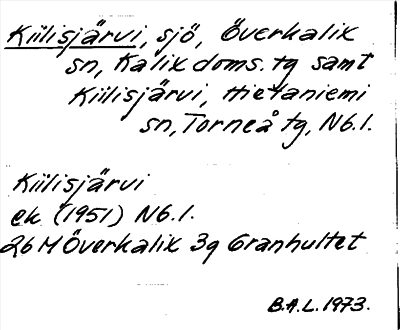 Kiilisjärvi, sjö, Överkalix
sn, Kalix doms. tg samt
Kiilisjärvi, Hietaniemi
sn, Torneå tg, Nb.l.
Kiilisjärvi
ek (1951) Nb.l.
26 M Överkalix 3g Granhultet
B.A.L. 1973.